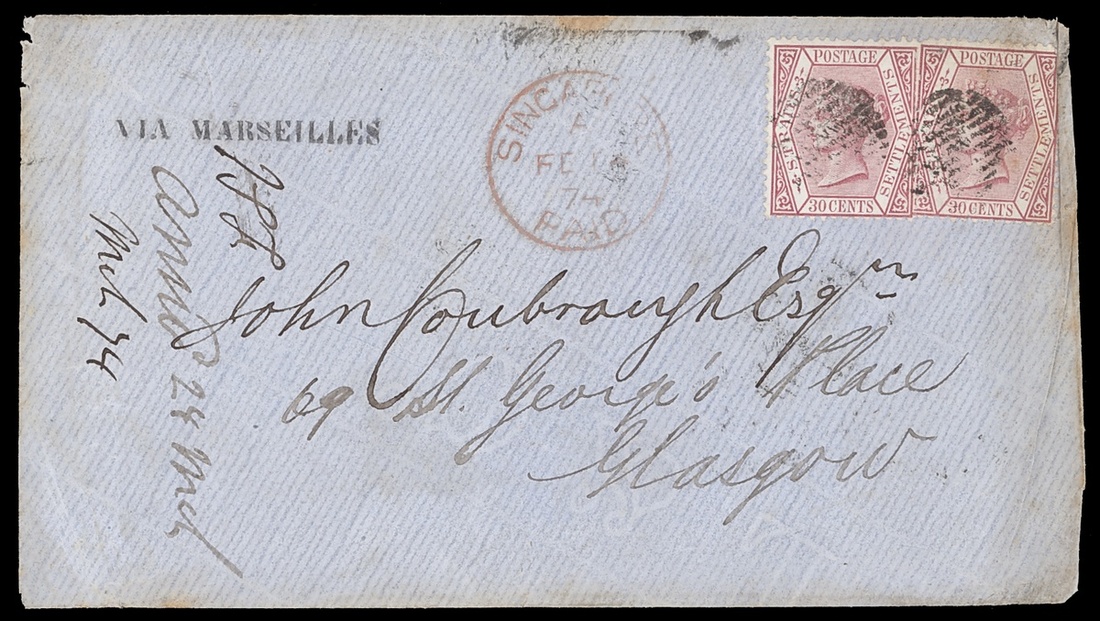 VIA MARSEILLES
SINGAPORE
A
FE
74
PAID
POSTAGE
STRAITS SETTLEMENTS
30 CENTS
POSTAGE
STRAITS SETTLEMENTS
30 CENTS
John Coubrough Esqre
69 St. George's Place
Glasgow
24 Mch
Mch 74